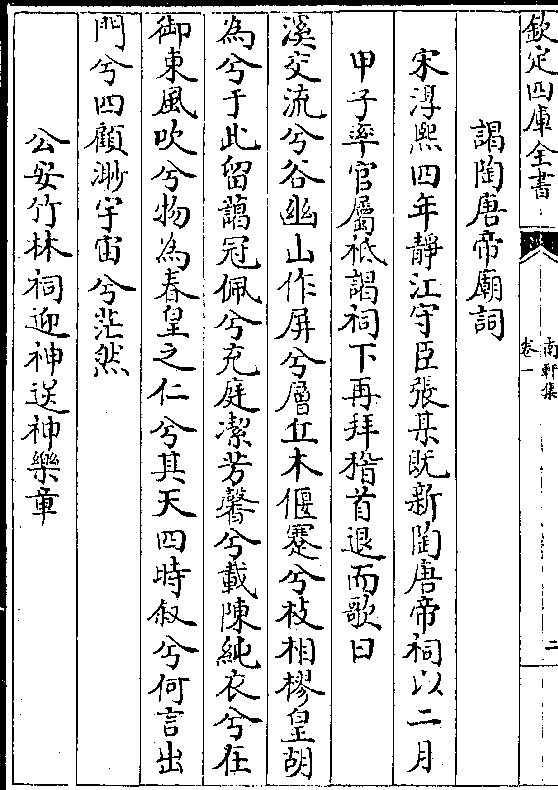 欽定四庫全書
南軒集
卷一
二
謁陶唐帝廟詞
宋淳熙四年靜江守臣張某既新陶唐帝祠以二月
甲子率官屬祗謁祠下再拜稽首退而歌曰
溪交流兮谷幽山作屏兮層丘木偃蹇兮枝相樛皇胡
為兮于此留藹冠佩兮充庭潔芳馨兮載陳純衣兮在
御東風吹兮物為春皇之仁兮其天四時叙兮何言出
門兮四顧渺宇宙兮茫然
公安竹林祠迎神送神樂章